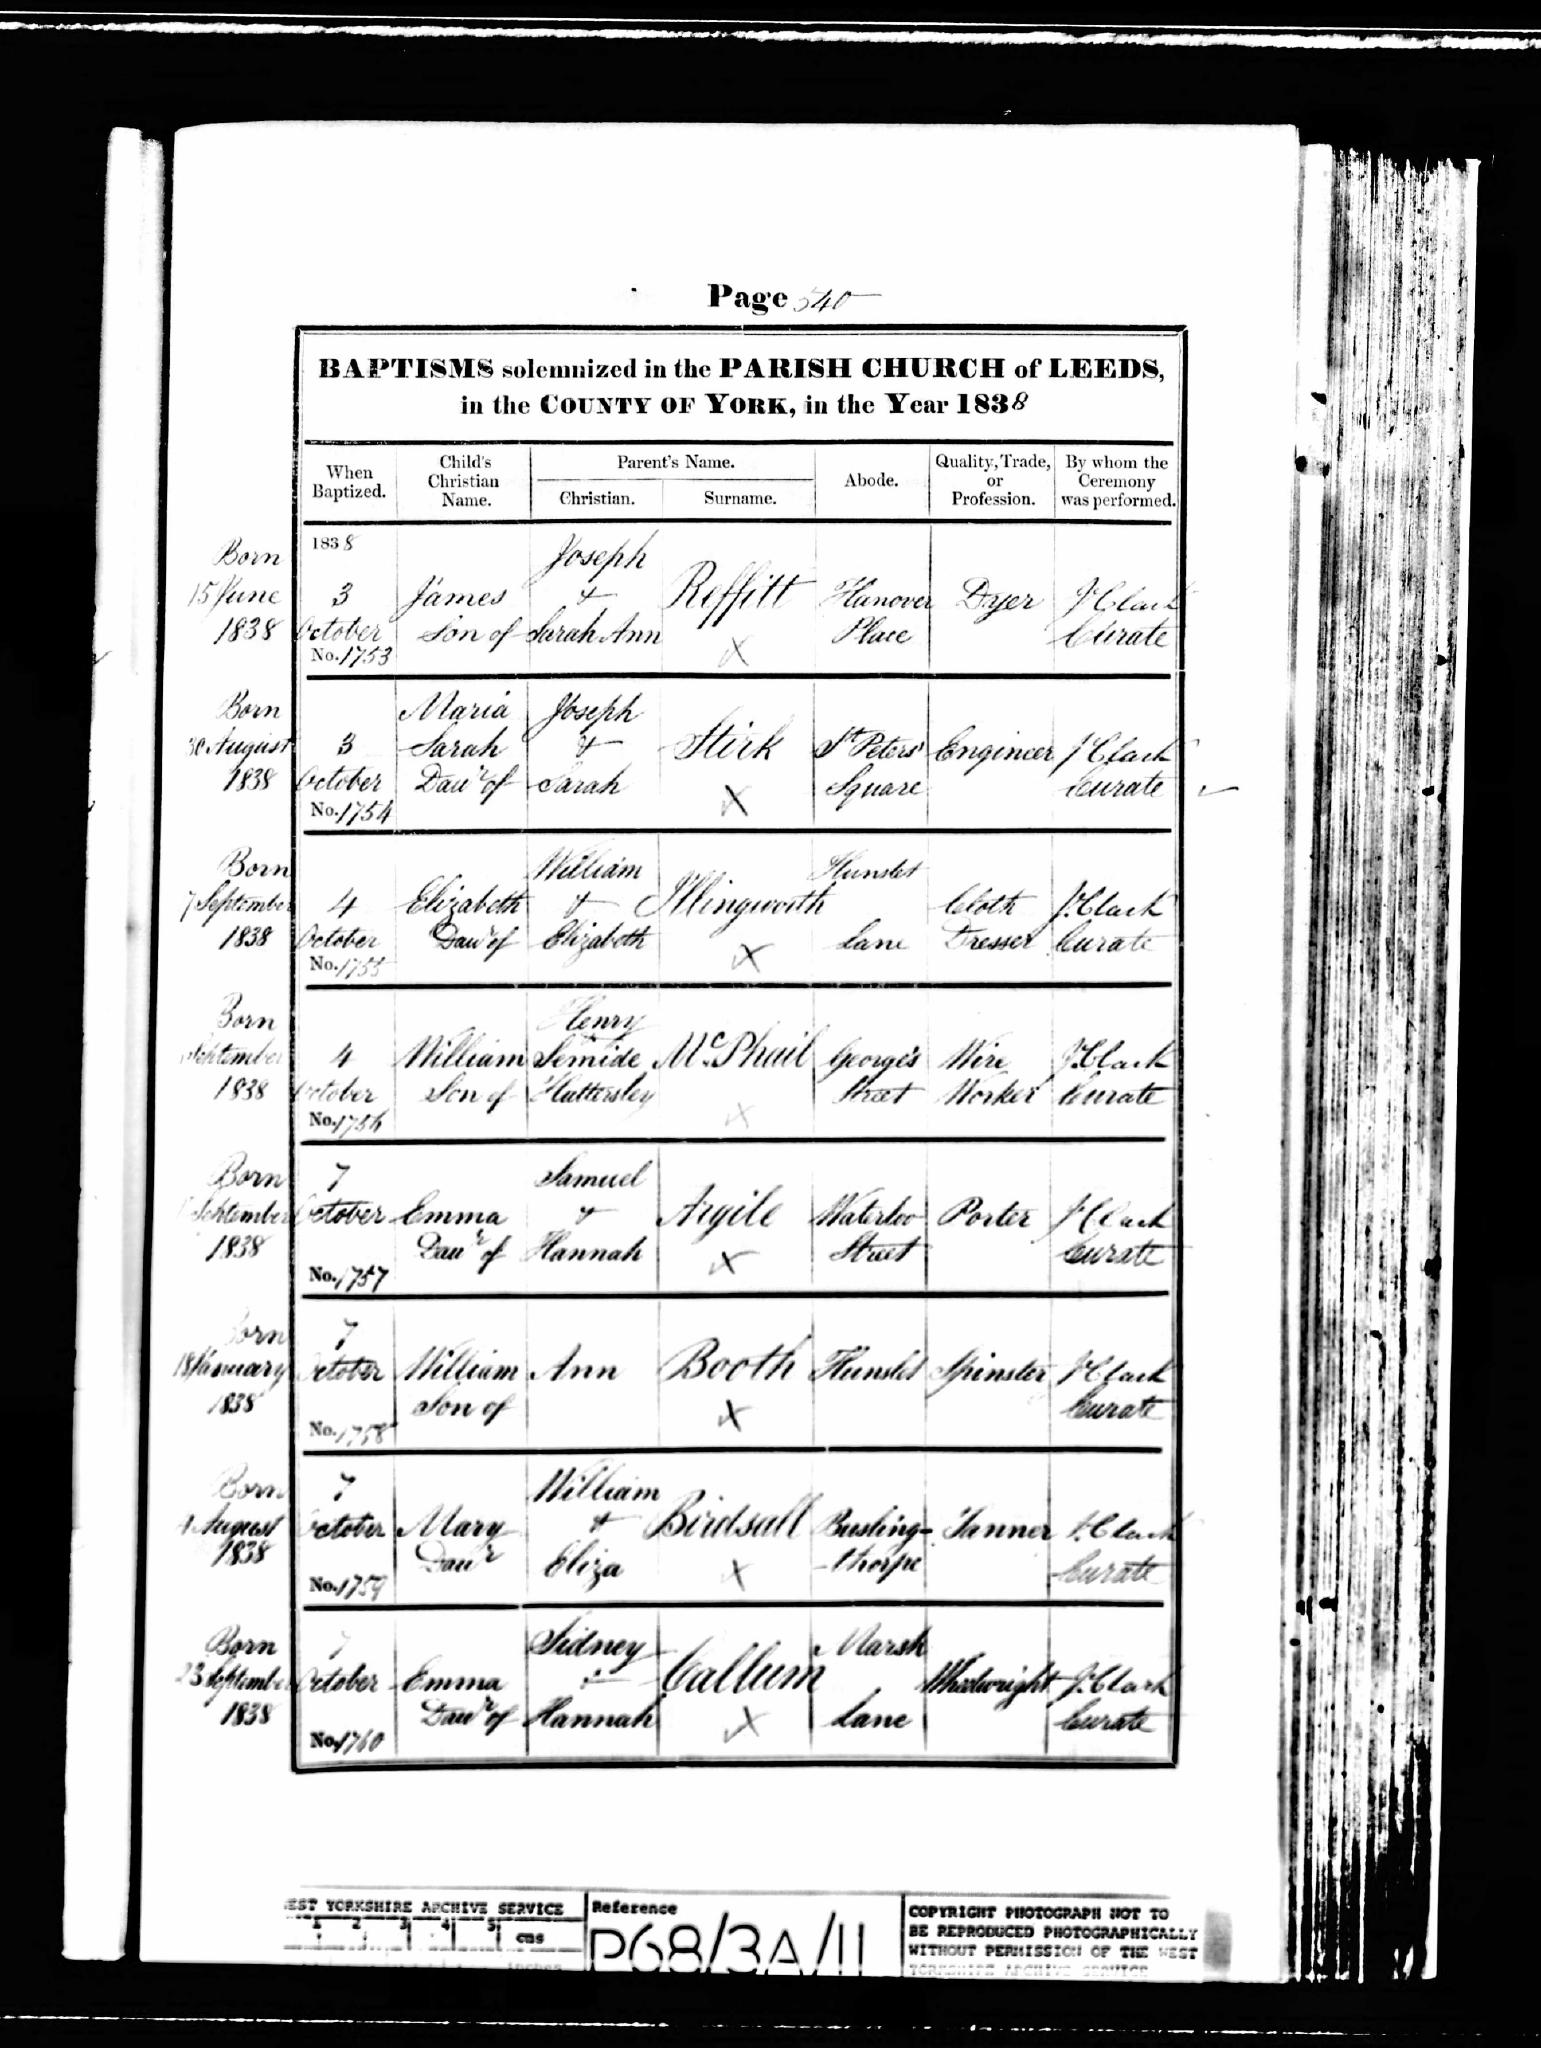 Page 540
BAPTISMS solemnized in the PARISH CHURCH of LEEDS,
in the COUNTY OF YORK, in the Year 1838
When Baptized.
Child's Christian Name.
Parent's Name.
Christian.
Surname.
Abode.
Quality, Trade, or Profession.
By whom the Ceremony was performed.
Born 15 June 1838
1838 3 October No. 1753
James Son of
Joseph & Sarah Ann
Reffitt
Hanover Place
Dyer
J. Clark Curate
Born 30 August 1838
3 October No. 1754
Maria Sarah Daur of
Joseph & Sarah
Stirk
St Peters' Square
Engineer
J. Clark Curate
Born 7 September 1838
4 October No. 1755
Elizabeth Daur of
William & Elizabeth
Illingworth
Hunslet Lane
Cloth Dresser
J. Clark Curate
Born September 1838
4 October No. 1756
William Son of
Henry
McPhail
George's Street
Wire Worker
J. Clark Curate
Born September 1838
7 October No. 1757
Emma Daur of
Samuel & Hannah
Argile
Waterloo Street
Porter
J. Clark Curate
Born 18 January 1838
7 October No. 1758
William Son of
Ann
Booth
Hunslet
Spinster
J. Clark Curate
Born August 1838
7 October No. 1759
Mary Daur
William & Eliza
Birdsall
Busling-thorpe
Tanner
J. Clark Curate
Born 23 September 1838
7 October No. 1760
Emma Daur of
Sidney & Hannah
Callum
Marsh Lane
Wheelwright
J. Clark Curate
WEST YORKSHIRE ARCHIVE SERVICE
1 2 3 4 5 cms
inches
Reference
P68/3A/11
COPYRIGHT PHOTOGRAPH NOT TO
BE REPRODUCED PHOTOGRAPHICALLY
WITHOUT PERMISSION OF THE WEST
YORKSHIRE ARCHIVE SERVICE